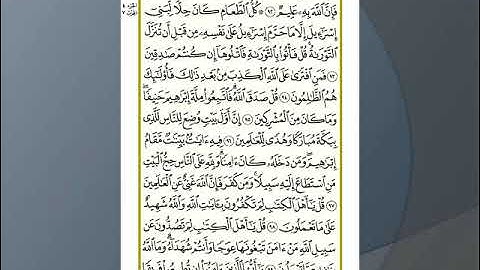 فَإِنَّ ٱللَّهَ بِهِۦ عَلِيمٌ ٩٢ ۞ كُلُّ ٱلطَّعَامِ كَانَ حِلًّا لِّبَنِىٓ
إِسْرَٰٓءِيلَ إِلَّا مَا حَرَّمَ إِسْرَٰٓءِيلُ عَلَىٰ نَفْسِهِۦ مِن قَبْلِ أَن تُنَزَّلَ
ٱلتَّوْرَىٰةُ قُلْ فَأْتُوا۟ بِٱلتَّوْرَىٰةِ فَٱتْلُوهَآ إِن كُنتُمْ صَـٰدِقِينَ
٩٣ فَمَنِ ٱفْتَرَىٰ عَلَى ٱللَّهِ ٱلْكَذِبَ مِنۢ بَعْدِ ذَٰلِكَ فَأُو۟لَـٰٓئِكَ
هُمُ ٱلظَّـٰلِمُونَ ٩٤ قُلْ صَدَقَ ٱللَّهُ فَٱتَّبِعُوا۟ مِلَّةَ إِبْرَٰهِيمَ حَنِيفًا
وَمَا كَانَ مِنَ ٱلْمُشْرِكِينَ ٩٥ إِنَّ أَوَّلَ بَيْتٍ وُضِعَ لِلنَّاسِ لَلَّذِى
بِبَكَّةَ مُبَارَكًا وَهُدًى لِّلْعَـٰلَمِينَ ٩٦ فِيهِ ءَايَـٰتٌۢ بَيِّنَـٰتٌ مَّقَامُ
إِبْرَٰهِيمَ وَمَن دَخَلَهُۥ كَانَ ءَامِنًا وَلِلَّهِ عَلَى ٱلنَّاسِ حِجُّ ٱلْبَيْتِ
مَنِ ٱسْتَطَاعَ إِلَيْهِ سَبِيلًا وَمَن كَفَرَ فَإِنَّ ٱللَّهَ غَنِىٌّ عَنِ ٱلْعَـٰلَمِينَ
٩٧ قُلْ يَـٰٓأَهْلَ ٱلْكِتَـٰبِ لِمَ تَكْفُرُونَ بِـَٔايَـٰتِ ٱللَّهِ وَٱللَّهُ شَهِيدٌ
عَلَىٰ مَا تَعْمَلُونَ ٩٨ قُلْ يَـٰٓأَهْلَ ٱلْكِتَـٰبِ لِمَ تَصُدُّونَ عَن
سَبِيلِ ٱللَّهِ مَنْ ءَامَنَ تَبْغُونَهَا عِوَجًا وَأَنتُمْ شُهَدَآءُ وَمَا ٱللَّهُ